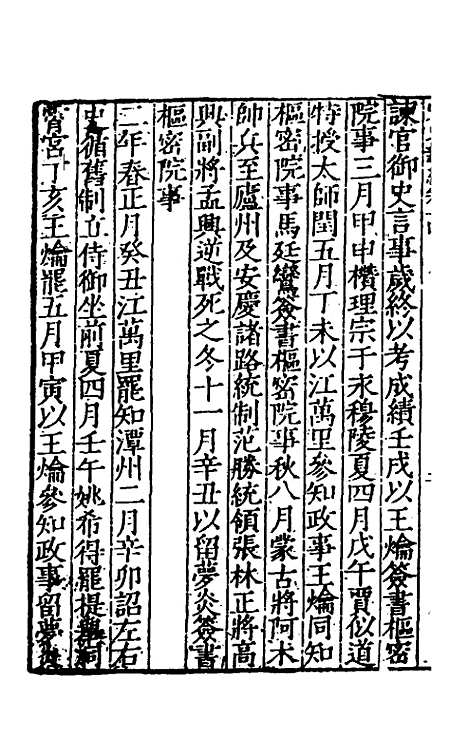 諫官御史言事歲終以考成績壬戌以王爚簽書樞密
院事三月甲申欑理宗于永穆陵夏四月戊午賈似道
特授太師閏五月丁未以江萬里參知政事王爚同知
樞密院事馬廷鸞簽書樞密院事秋八月蒙古將阿朮
帥兵至廬州及安慶諸路統制范勝統領張林正將高
興副將孟興逆戰死之冬十一月辛丑以留夢炎簽書
樞密院事
二年春正月癸丑江萬里罷知潭州二月辛卯詔左右
史循舊制立侍御坐前夏四月壬午姚希得罷提舉洞
霄宮丁亥王爚罷五月甲寅以王爚參知政事留夢